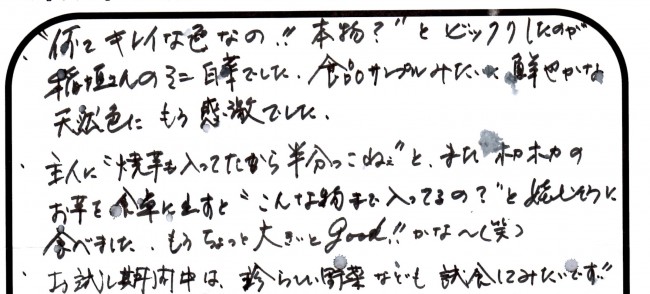 ・"何てキレイな色なの!! 本物?"とビックリしたのが
稲垣さんのミニ白菜でした。食品サンプルみたいに鮮やかな
天然色に もう感激でした。
・主人に"焼芋も入ってたから半分っこねぇ"と、また ホカホカの
お芋を食卓に出すと"こんな物まで入ってるの?"と嬉しそうに
食べました。もうちょっと大きいとGood!!かな〜(笑)
・お試し期間中は、珍らしい野菜なども試食してみたいです!!